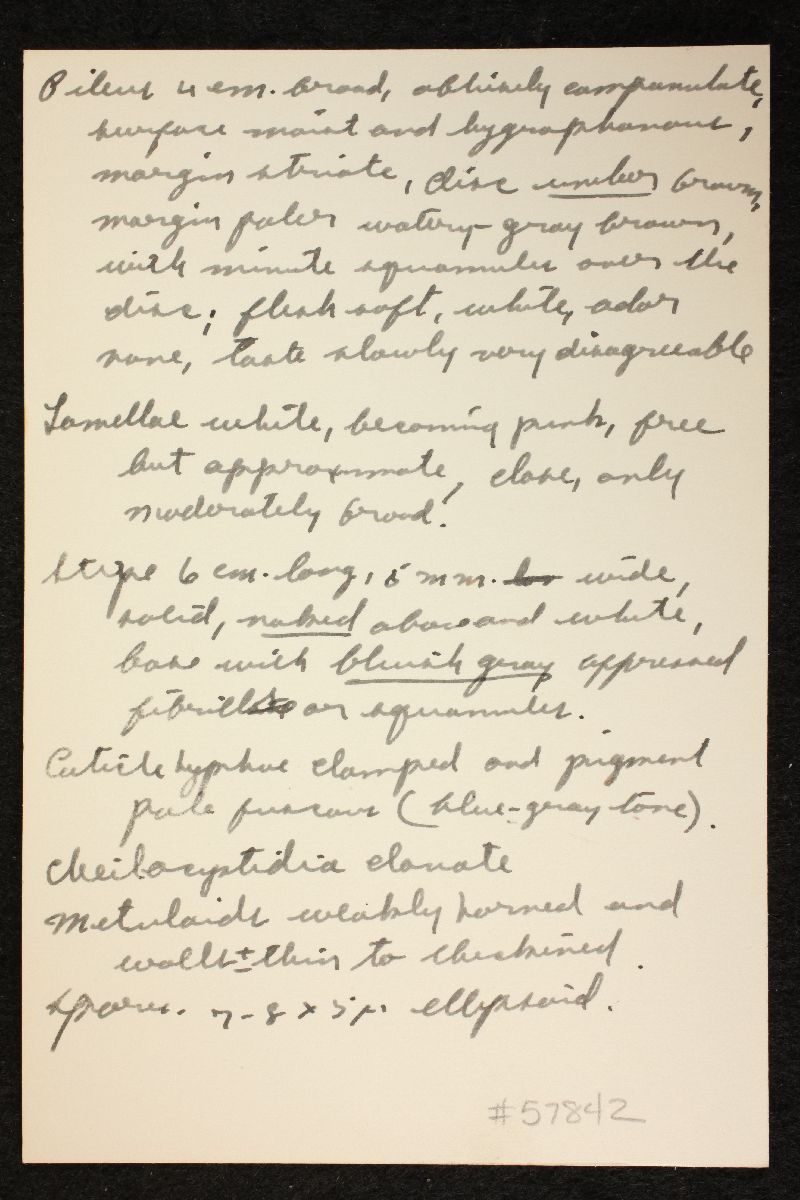 Pileus 4 cm. broad, obtusely campanulate,
surface moist and hygrophanous,
margin striate, disc umber brown,
margin paler watery-gray brown,
with minute squamules over the
disc; flesh soft, white, odor
none, taste slowly very disagreeable
Lamellae white, becoming pink, free
but approximate, close, only
moderately broad.
Stipe 6 cm. long, 5 mm. wide,
solid, naked above and white,
base with bluish gray appressed
fibrills or squamules.
Cuticle hyphae clamped and pigment
pale fuscous (blue-gray tone).
Cheilocystidia clavate
Metuloids weakly horned and
walls ± thin to thickened.
Spores. 7-8 x 5 µ ellipsoid.
#57842